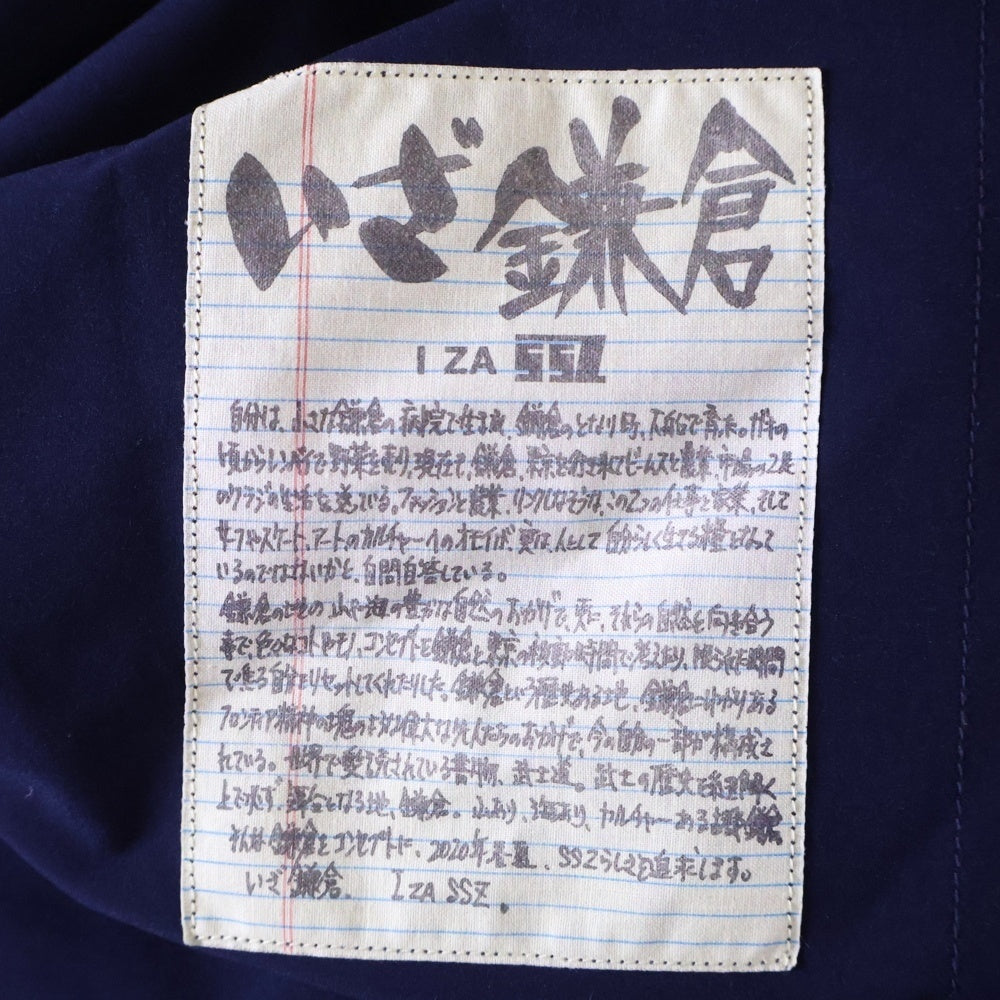 いざ鎌倉
IZA SSZ
自分は、鎌倉の病院で生まれ、鎌倉のとなり町、大船で育った。ガキの
頃から 野菜を売り、現在も、鎌倉、東京を行き来してビームスと農業、市場の2足
のワラジの生活を送っている。ファッションと農業、リンクしなそうな、この2つの仕事と家業、そして
サーフやスケート、アートのカルチャーへのオモイが、実は、人として自分らしく生きる糧となって
いるのではないかと、自問自答している。
鎌倉の地の山や海の豊かな自然のおかげで、更に、それらの自然と向き合う
事で色々なコトやモノ、コンセプトを鎌倉と東京の移動の時間で考えたり、限られた時間
で焦る自分をリセットしてくれたりした。鎌倉という歴史ある地、鎌倉にゆかりある
フロンティア精神の塊のような偉大な先人たちのおかげで、今の自分の一部が構成さ
れている。世界で愛読されている書物、武士道。武士の歴史を紐解く
上で必ず、舞台となる地、鎌倉。山あり、海あり、カルチャーある土地鎌倉
そんな鎌倉をコンセプトに、2020年春夏、SSZらしさを追求します。
いざ鎌倉。 IZA SSZ.